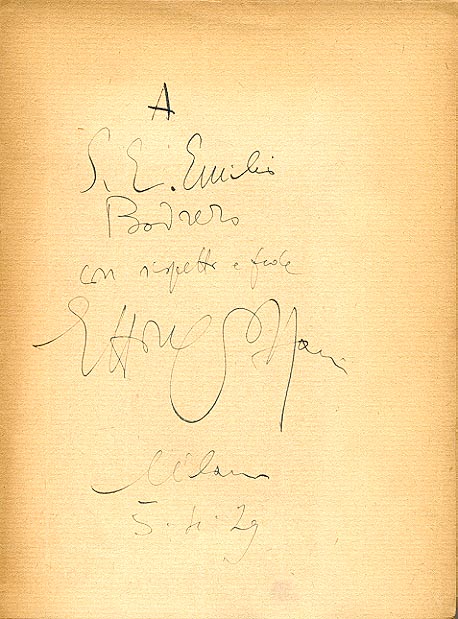 A
S. E. Emilio
Bodrero
con rispetto e fede
Ettore Cozzani
Milano
5. 4. 29